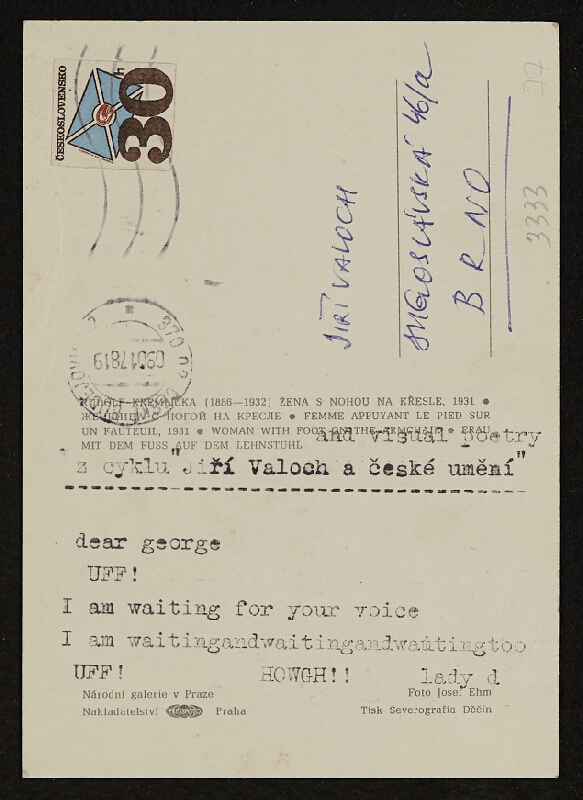 ČESKOSLOVENSKO
30 h
JIŘÍ VALOCH
JUGOSLÁVSKÁ 46/a
BRNO
3333
370 01
090178 19
RUDOLF KREMLIČKA (1886—1932) ŽENA S NOHOU NA KŘESLE, 1931 •
ЖЕНЩИНА С НОГОЙ НА КРЕСЛЕ • FEMME APPUYANT LE PIED SUR
UN FAUTEUIL, 1931 • WOMAN WITH FOOT ON THE ARMCHAIR • FRAU
MIT DEM FUSS AUF DEM LEHNSTUHL
and visual poetry
z cyklu "Jiří Valoch a české umění"
dear george
UFF!
I am waiting for your voice
I am waitingandwaitingandwaitingtoo
UFF! HOWGH!! lady d
Národní galerie v Praze
Foto Josef Ehm
Nakladatelství Praha
Tisk Severografia Děčín